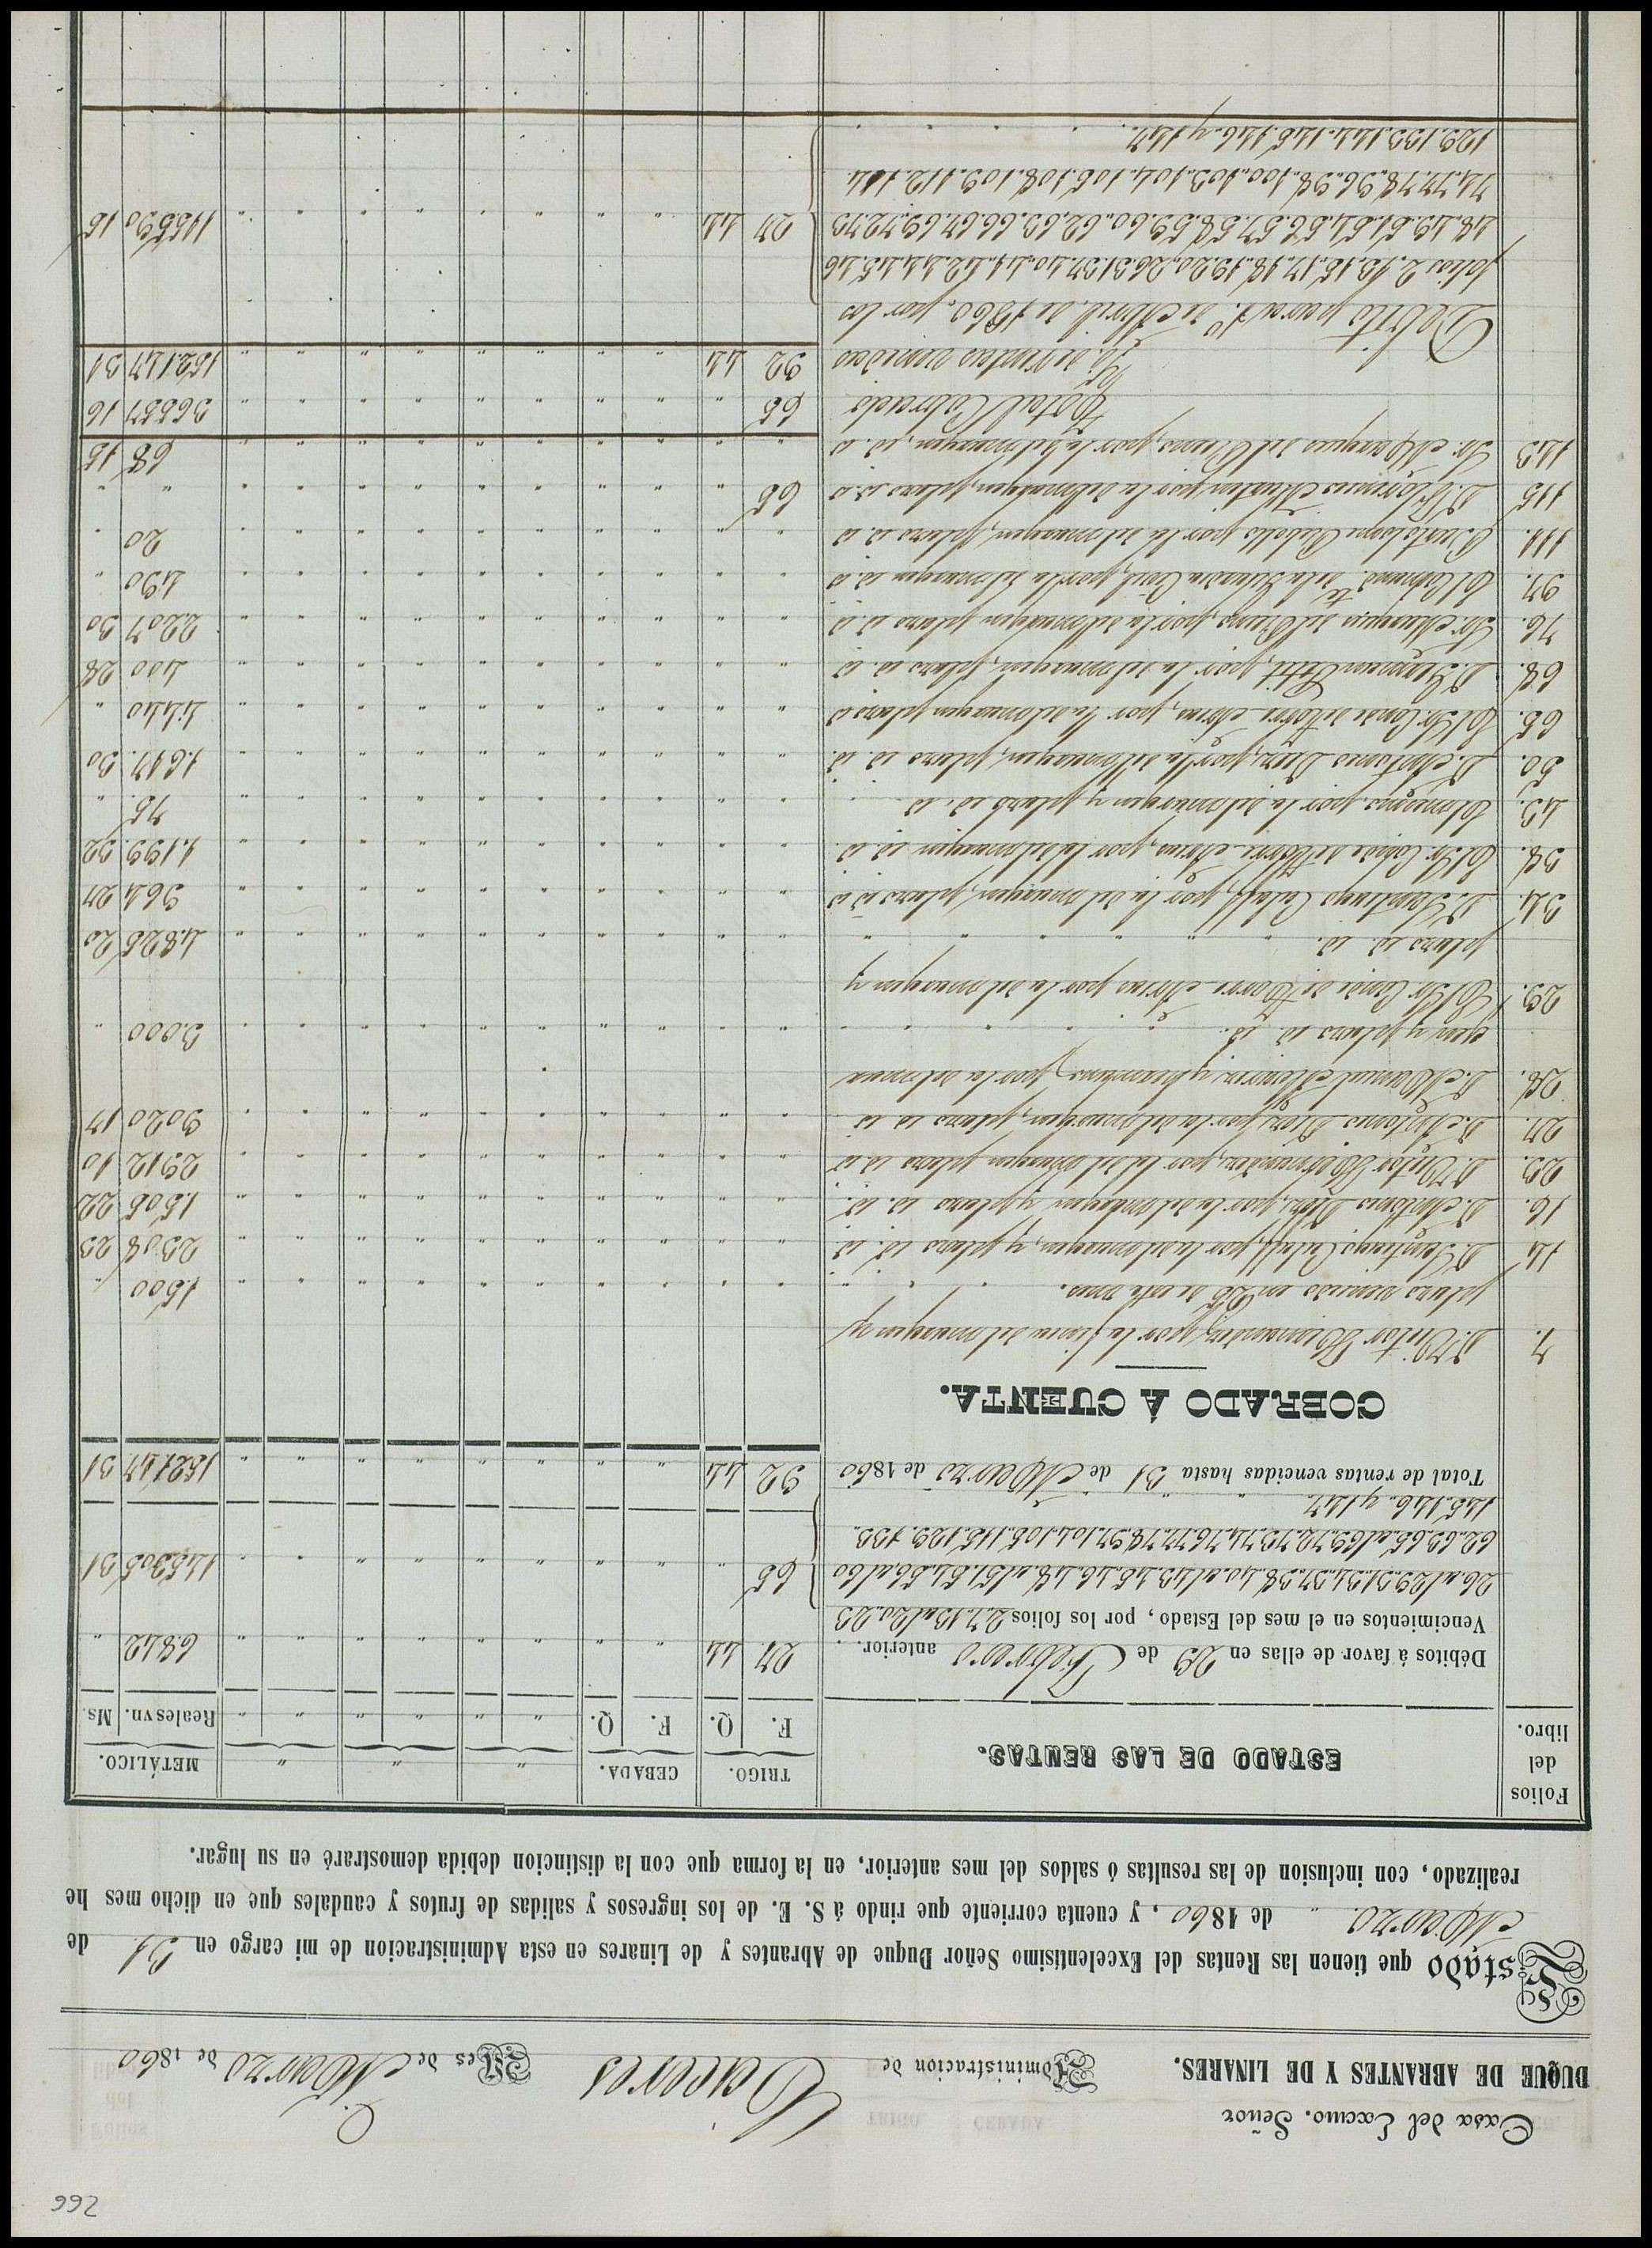 266
Casa del Excmo. Señor
DUQUE DE ABRANTES Y DE LINARES.
Administracion de Cáceres
Mes de Marzo de 1860
Estado que tienen las Rentas del Excelentísimo Señor Duque de Abrantes y de Linares en esta Administracion de mi cargo en 31 de
Marzo. " de 1860, y cuenta corriente que rindo á S. E. de los ingresos y salidas de frutos y caudales que en dicho mes he
realizado, con inclusion de las resultas ó saldos del mes anterior, en la forma que con la distincion debida demostraré en su lugar.
Folios del libro. ESTADO DE LAS RENTAS. TRIGO. CEBADA. " " " METÁLICO.
F. Q. F. Q. " " " " " " Reales vn. Ms.
Débitos á favor de ellas en 29 de Febrero anterior. 27 44 6.842 "
Vencimientos en el mes del Estado, por los folios 2,,7,,13 al 20,,23
26 al 29,,31,,34,,37,,38,,40 al 43,,45,,46,,48 al 51,,54,,56 al 60 65 " 145.305 31
62,,63,,65 al 69,,72,,73,,74,,76,,77,,78,,97,,104,,105,,115,,129,,133,
145,,146,, y 147.
Total de rentas vencidas hasta 31 de Marzo de 1860 92 44 152.147 31
COBRADO Á CUENTA.
7. D. Victor Hernandez, por la finca del margen y
plazo vencido en 25 de este mes. 1.500 "
14. D. Santiago Calaff, por la del margen, y plazo id. id. 2508 23
16. D. Antonio Diez, por la del margen y plazo id. id. 1.505 22
23. D. Victor Hernandez, por la del margen plazo id. id. 2912 10
27. D. Antonio Diez, por la del margen, plazo id. id. 3020 17
28. D. Manuel Muñoz y hermanos, por la del mar
gen y plazo id. id. 3.000 "
29. El Sr. Conde de Torre Arias por la del margen y
plazo id. id. 4.825 20
34. D. Santiago Calaff, por la del margen, plazo id. id. 364 27
38. El Sr. Conde de Torre Arias, por la del margen id. id. 1.199 32
43. El mismo, por la del margen y plazo id. id. 75 "
50. D. Antonio Diez, por la del margen, plazo id. id. 1.617 30
65. El Sr. Conde de Torre Arias, por la del margen plazo id. 4.440 "
68. D. German Petit, por la del margen, plazo id. id. 400 28
76. Sr. Marques del Reino, por la del margen plazo id. id. 2207 30
97. El Comandte. de la Guardia Civil, por la del margen id. id. 490 "
111. Bartolome Rebollo por la del margen, plazo id. id. 20 "
115 D. Higinio Martin, por la del margen, plazo id. id. 65 " "
143 Sr. Marques del Reino, por la del margen, id. id. 68 15
Total Cobrado 65 " 36557 16
Yd. de rentas vencidas 92 44 152.147 31
Débito para 1.º de Abril de 1860, por los
folios 2,,13,,15,,17,,18,,19,,20,,26,,31,,37,,40,,41,,42,,44,,45,,46
48,,49,,51,,54,,56,,57,,58,,59,,60,,62,,63,,66,,67,,69,,72,,73 27 44 115590 15
74,,77,,78,,96,,98,,100,,103,,104,,105,,108,,109,,112,,114
129,,133,,144,,145,,146,, y 147.